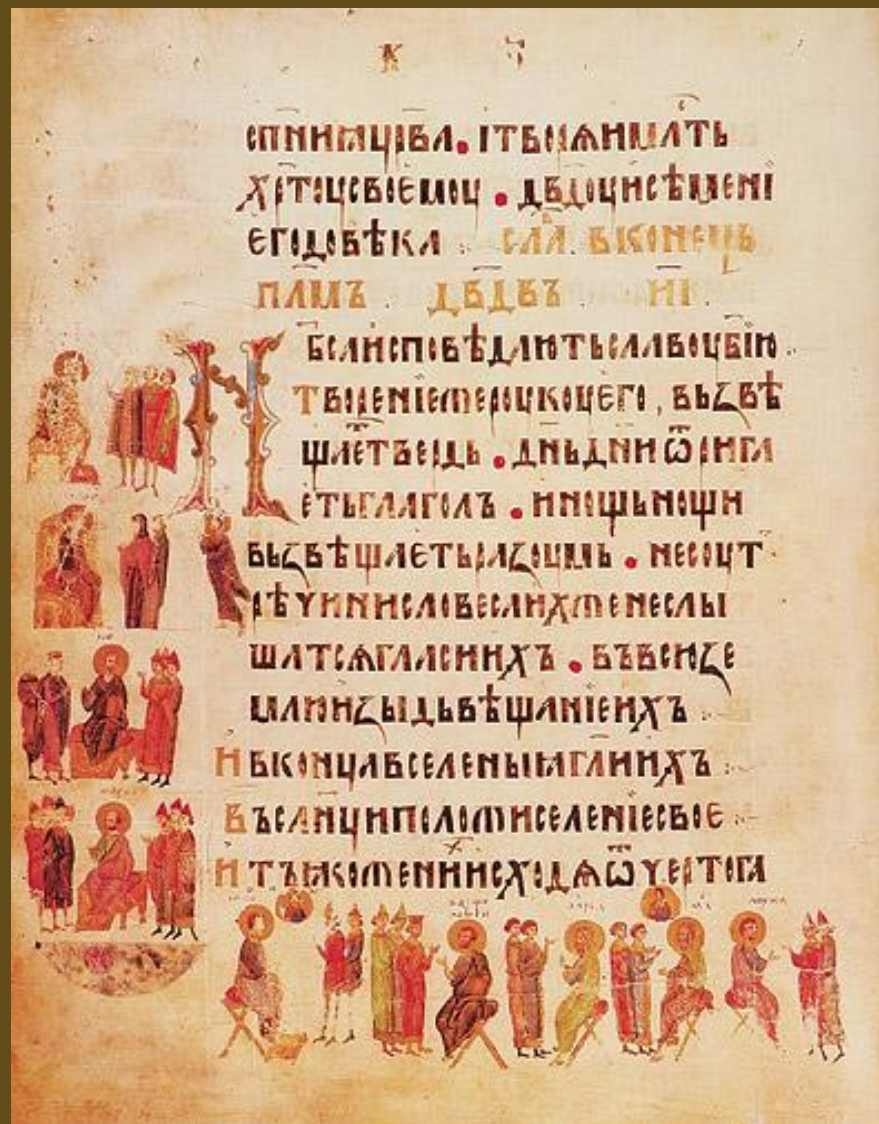 К Ѕ
спн҃иꙗцр҃ва. ітворѧимл҃ть
хр҃тоусвоемоу . дв҃доуисѣмені
егодовѣка ⁘ сла҃. вконець
пл҃мъ дв҃двъ н҃і
Нб҃саисповѣдаютьславоуб҃ію
твореніежероукоуего, възвѣ
щаетътвердь . дн҃ьдн҃иѿрига
етьглаголъ . инощьнощи
възвѣщаетьразоумь . несоут
рѣчинисловесаихженеслы
шатсѧгласиихъ . въвсюзе
млюизыдьвѣщаніеихъ ⁘
ивконцавселеныꙗгл҃иихъ ⁘
въсл҃нциположиселеніесвое ⁘
итъꙗкоженихисходѧѿчертога